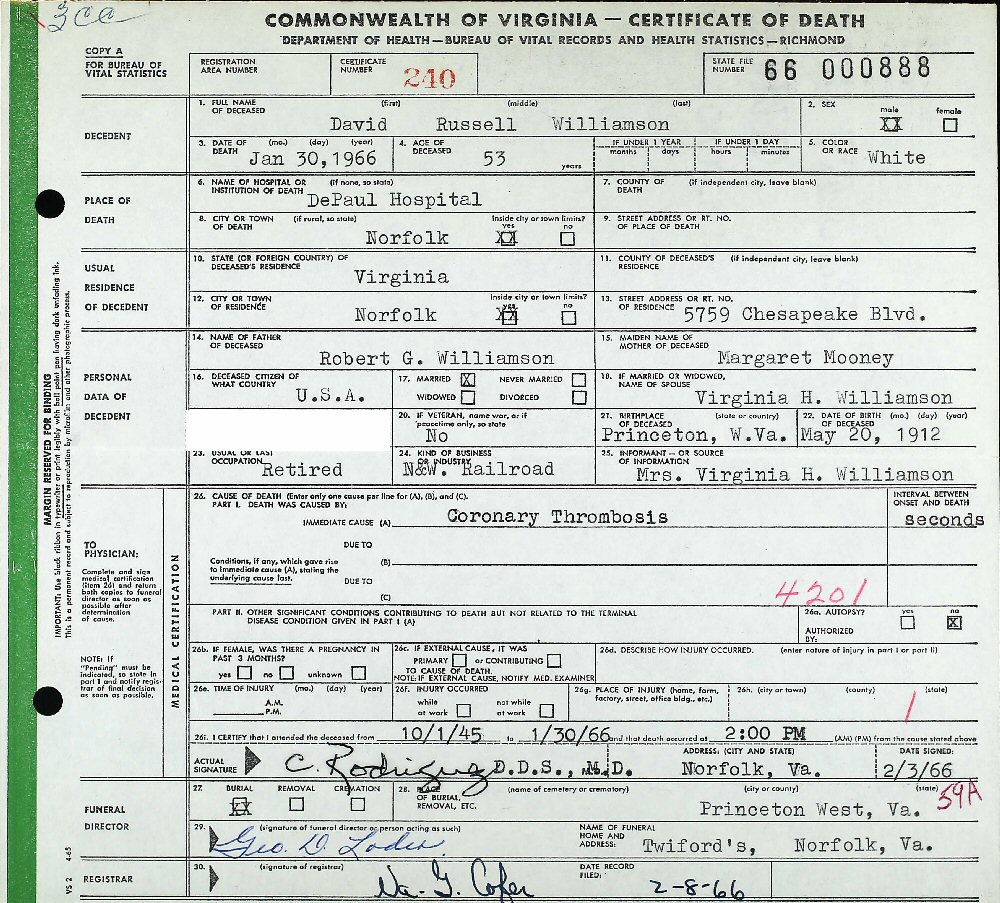 3CC
COMMONWEALTH OF VIRGINIA — CERTIFICATE OF DEATH
DEPARTMENT OF HEALTH—BUREAU OF VITAL RECORDS AND HEALTH STATISTICS—RICHMOND
COPY A
FOR BUREAU OF
VITAL STATISTICS
REGISTRATION
AREA NUMBER
CERTIFICATE
NUMBER 240
STATE FILE
NUMBER 66 000888
DECEDENT
1. FULL NAME OF DECEASED (first) (middle) (last)
David Russell Williamson
2. SEX male female
XX
3. DATE OF DEATH (mo.) (day) (year)
Jan 30,1966
4. AGE OF DECEASED 53 years
IF UNDER 1 YEAR months days
IF UNDER 1 DAY hours minutes
5. COLOR OR RACE White
PLACE OF
DEATH
6. NAME OF HOSPITAL OR INSTITUTION OF DEATH (if none, so state)
DePaul Hospital
7. COUNTY OF DEATH (if independent city, leave blank)
8. CITY OR TOWN OF DEATH (if rural, so state)
Norfolk
Inside city or town limits? yes no
XX
9. STREET ADDRESS OR RT. NO. OF PLACE OF DEATH
USUAL
RESIDENCE
OF DECEDENT
10. STATE (OR FOREIGN COUNTRY) OF DECEASED'S RESIDENCE
Virginia
11. COUNTY OF DECEASED'S RESIDENCE (if independent city, leave blank)
12. CITY OR TOWN OF RESIDENCE
Norfolk
Inside city or town limits? yes no
XX
13. STREET ADDRESS OR RT. NO. OF RESIDENCE
5759 Chesapeake Blvd.
PERSONAL
DATA OF
DECEDENT
14. NAME OF FATHER OF DECEASED
Robert G. Williamson
15. MAIDEN NAME OF MOTHER OF DECEASED
Margaret Mooney
16. DECEASED CITIZEN OF WHAT COUNTRY
U.S.A.
17. MARRIED X NEVER MARRIED
WIDOWED DIVORCED
18. IF MARRIED OR WIDOWED, NAME OF SPOUSE
Virginia H. Williamson
20. IF VETERAN, name war, or if peacetime only, so state
No
21. BIRTHPLACE OF DECEASED (state or country)
Princeton, W.Va.
22. DATE OF BIRTH OF DECEASED (mo.) (day) (year)
May 20, 1912
23. USUAL OR LAST OCCUPATION Retired
24. KIND OF BUSINESS OR INDUSTRY
N&W. Railroad
25. INFORMANT — OR SOURCE OF INFORMATION
Mrs. Virginia H. Williamson
TO
PHYSICIAN:
Complete and sign
medical certification
(item 26) and return
both copies to funeral
director as soon as
possible after
determination
of cause.
NOTE: If
"Pending" must be
indicated, so state in
part 1 and notify regis-
trar of final decision
as soon as possible.
MEDICAL CERTIFICATION
26. CAUSE OF DEATH (Enter only one cause per line for (A), (B), and (C).
PART I. DEATH WAS CAUSED BY:
IMMEDIATE CAUSE (A) Coronary Thrombosis
INTERVAL BETWEEN
ONSET AND DEATH
seconds
DUE TO
Conditions, if any, which gave rise
to immediate cause (A), stating the
underlying cause last.
(B)
DUE TO
(C)
4201
PART II. OTHER SIGNIFICANT CONDITIONS CONTRIBUTING TO DEATH BUT NOT RELATED TO THE TERMINAL
DISEASE CONDITION GIVEN IN PART I (A)
26a. AUTOPSY? yes no
X
AUTHORIZED
BY:
26b. IF FEMALE, WAS THERE A PREGNANCY IN PAST 3 MONTHS?
yes no unknown
26c. IF EXTERNAL CAUSE, IT WAS
PRIMARY or CONTRIBUTING
TO CAUSE OF DEATH.
NOTE: IF EXTERNAL CAUSE, NOTIFY MED. EXAMINER
26d. DESCRIBE HOW INJURY OCCURRED. (enter nature of injury in part I or part II)
26e. TIME OF INJURY (mo.) (day) (year)
A.M.
P.M.
26f. INJURY OCCURRED
while at work not while at work
26g. PLACE OF INJURY (home, farm, factory, street, office bldg., etc.)
26h. (city or town) (county) (state)
1
26i. I CERTIFY that I attended the deceased from 10/1/45 to 1/30/66 and that death occurred at 2:00 PM (AM) (PM) from the cause stated above
ACTUAL
SIGNATURE C. Rodriguez D.D.S., M.D.
ADDRESS: (CITY AND STATE)
Norfolk, Va.
DATE SIGNED:
2/3/66
FUNERAL
DIRECTOR
27. BURIAL REMOVAL CREMATION
XX
28. PLACE OF BURIAL, REMOVAL, ETC. (name of cemetery or crematory) (city or county) (state)
Princeton West, Va.
59A
29. (signature of funeral director or person acting as such)
NAME OF FUNERAL
HOME AND
ADDRESS: Twiford's, Norfolk, Va.
REGISTRAR
30. (signature of registrar)
DATE RECORD
FILED: 2-8-66
MARGIN RESERVED FOR BINDING
IMPORTANT: Use black ribbon in typewriter or print legibly with ball point pen having dark unfading ink.
This is a permanent record and subject to reproduction by microfilm and other photographic process.
VS 2 4-65